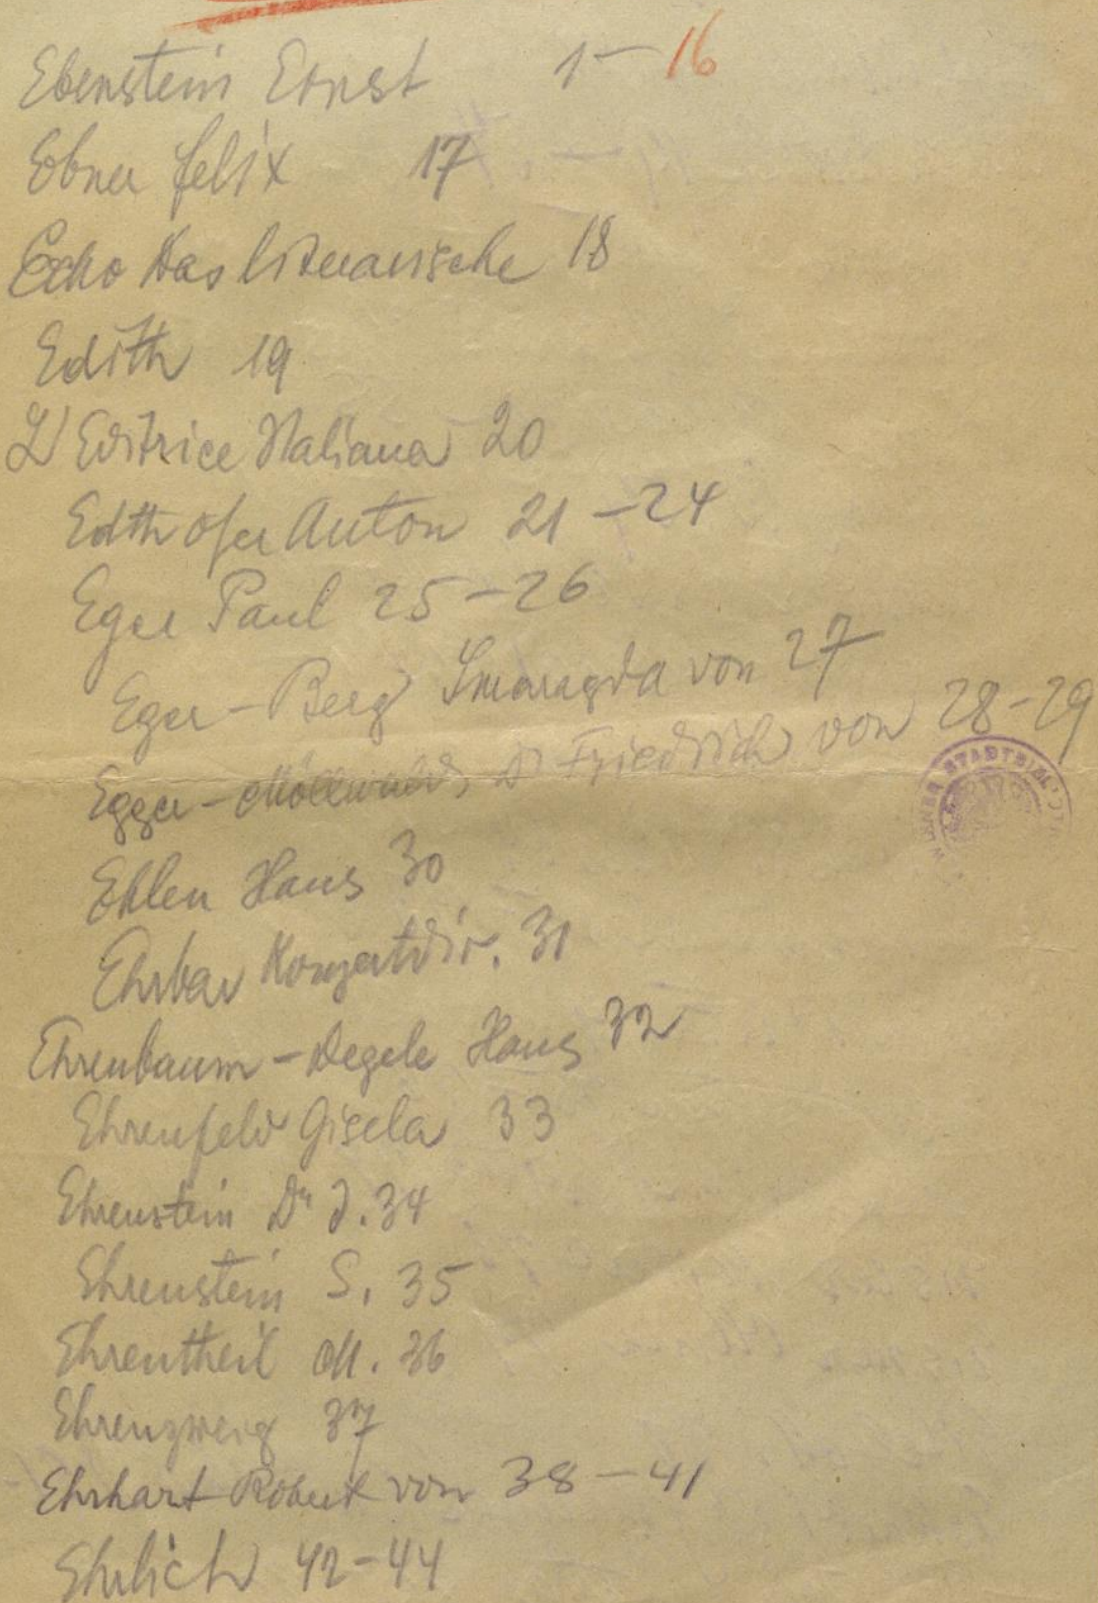 Ebenstein Ernst 1-16
Ebner Felix 17
Echo Das literarische 18
Edith 19
L'Editrice Italiana 20
Edthofer Anton 21-24
Eger Paul 25-26
Eger-Berg Smaragda von 27
Egger-Möllwald, Dr Friedrich von 28-29
WIENER STADTBIBLIOTHEK
Ehlen Hans 30
Ehrbar Konzertdir. 31
Ehrenbaum-Degele Hans 32
Ehrenfeld Gisela 33
Ehrenstein Dr J. 34
Ehrenstein S. 35
Ehrentheil M. 36
Ehrenzweig 37
Ehrhart Robert von 38-41
Ehrlich 42-44